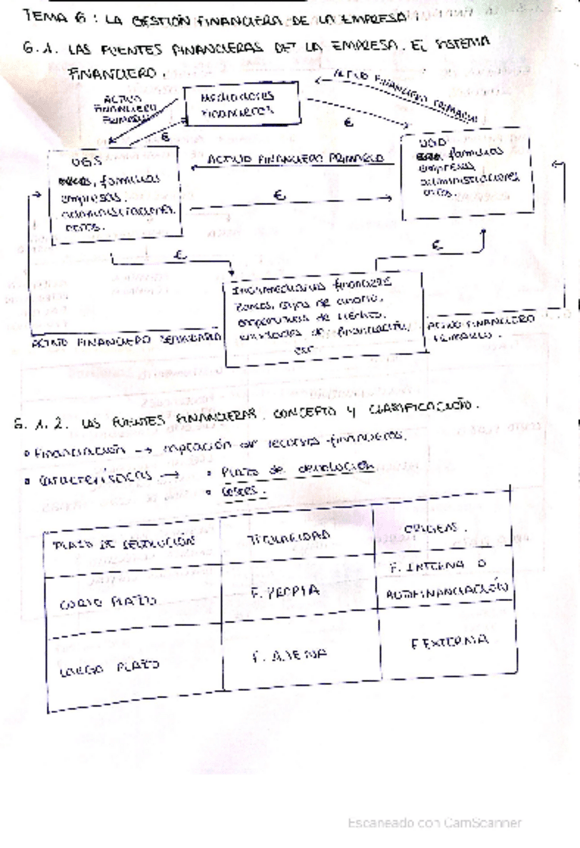 TEMA 6: LA GESTIÓN FINANCIERA DE LA EMPRESA.
6.1. LAS FUENTES FINANCIERAS DE LA EMPRESA. EL SISTEMA
FINANCIERO.
ACTIVO
FINANCIERO
PRIMARIO
Mediadores
financieros
ACTIVO FINANCIERO PRIMARIO
€
€
UGS
familias
empresas,
administraciones,
otros.
ACTIVO FINANCIERO PRIMARIO
€
UGD
familias
empresas
administraciones
otros.
€
€
Intermediarios financieros
Bancos, cajas de ahorro,
cooperativas de crédito,
entidades de financiación,
etc
ACTIVO FINANCIERO SECUNDARIO
ACTIVO FINANCIERO
PRIMARIO.
6.1.2. LAS FUENTES FINANCIERAS. CONCEPTO Y CLASIFICACIÓN.
• Financiación → captación de recursos financieros.
• Características → • Plazo de devolución
• Costes.
PLAZO DE DEVOLUCIÓN
TITULARIDAD
ORIGEN.
CORTO PLAZO
F. PROPIA
F. INTERNA O
AUTOFINANCIACIÓN
LARGO PLAZO
F. AJENA
F EXTERNA
Escaneado con CamScanner